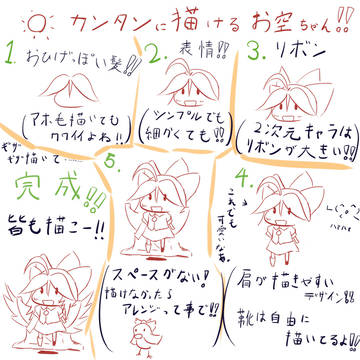 カンタンに描ける お空ちゃん!!
1.
おひげっぽい髪!!
(アホ毛描いても
カワイイよね!!)
2.
表情!!
(シンプルでも
細かくても!!)
3.
リボン
(2次元キャラは
リボンが大きい!!)
4.
これでも
可愛いなぁ。
肩が描きやすい
デザイン!!
靴は自由に
描いてるよ!!
5.
ギザ
ギザ描いて……
(スペースがない!
描けなかったら
アレンジって事で!!)
完成!!
皆も描こー!!